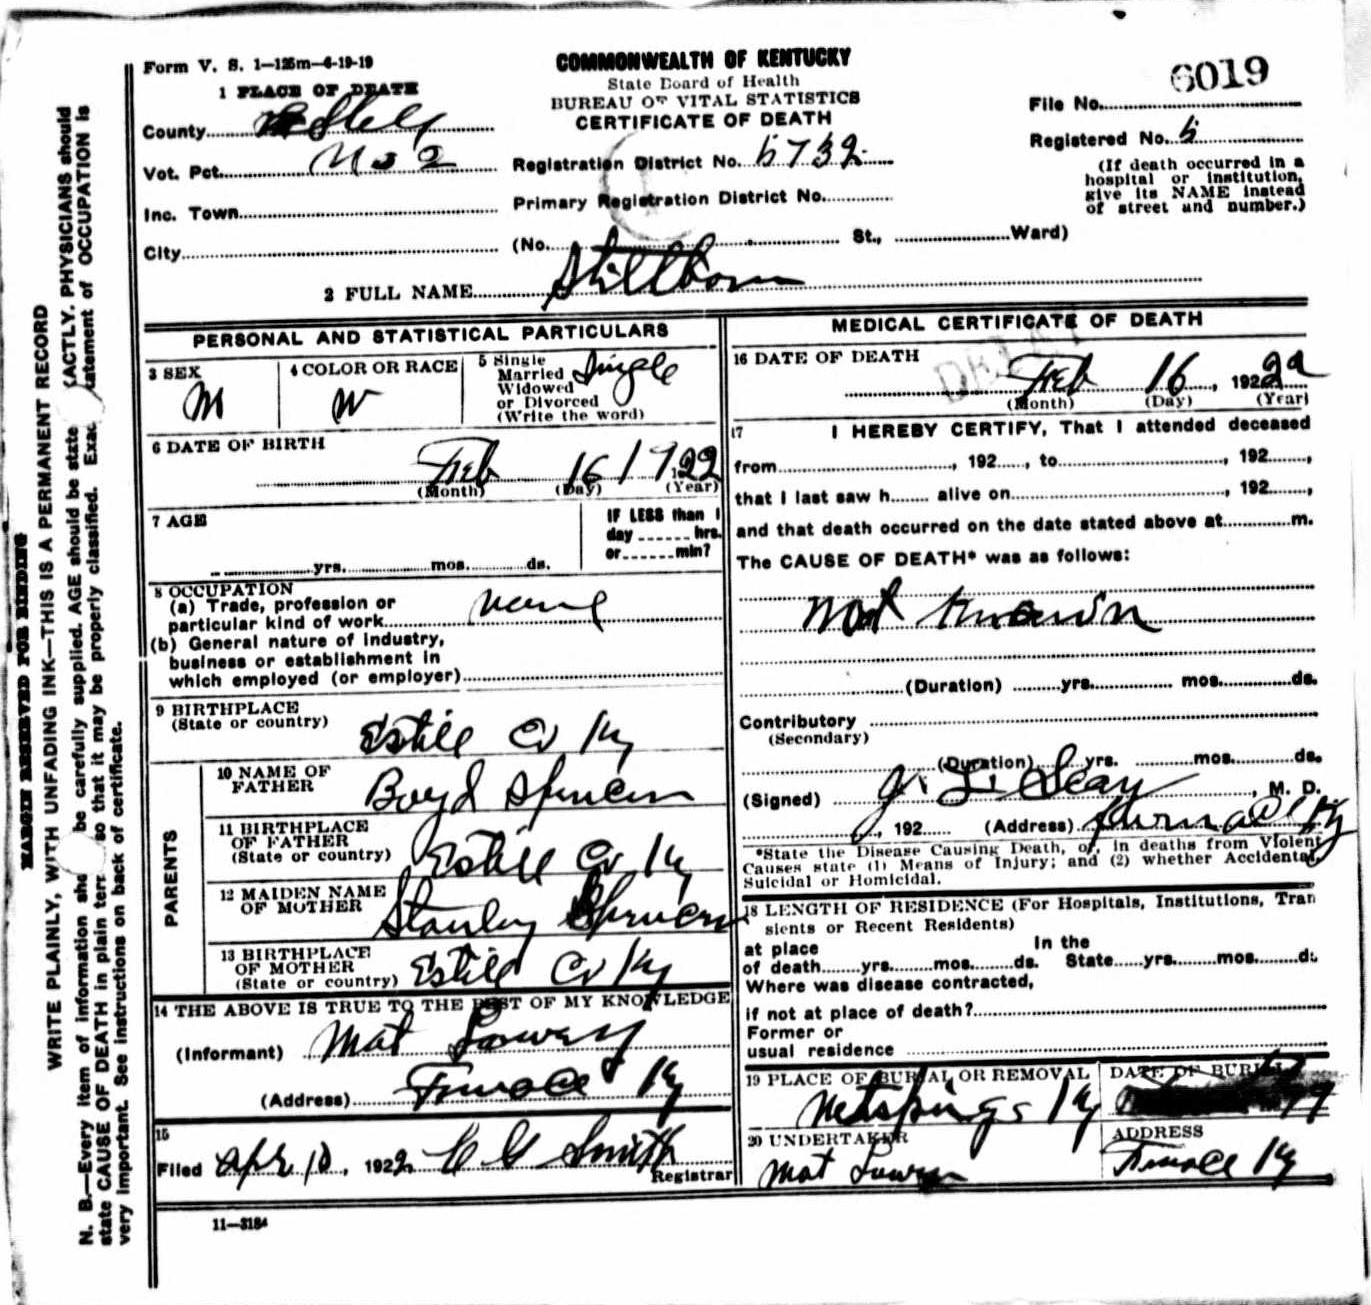 Form V. S. 1—125m—4-19-19
COMMONWEALTH OF KENTUCKY
State Board of Health
BUREAU OF VITAL STATISTICS
CERTIFICATE OF DEATH
6019
File No.
Registered No. 5
(If death occurred in a
hospital or institution,
give its NAME instead
of street and number.)
1 PLACE OF DEATH
County
Vot. Pct. No 2
Inc. Town
City
Registration District No. 5732
Primary Registration District No.
(No. St., Ward)
2 FULL NAME Stillborn
PERSONAL AND STATISTICAL PARTICULARS
3 SEX
M
4 COLOR OR RACE
W
5 Single
Married
Widowed
or Divorced
(Write the word)
Single
6 DATE OF BIRTH
Feb 16 1922
(Month) (Day) (Year)
7 AGE
yrs. mos. ds.
IF LESS than 1
day hrs.
or min?
8 OCCUPATION
(a) Trade, profession or
particular kind of work none
(b) General nature of industry,
business or establishment in
which employed (or employer)
9 BIRTHPLACE
(State or country)
Estill Co Ky
PARENTS
10 NAME OF
FATHER
Boyd Spencer
11 BIRTHPLACE
OF FATHER
(State or country)
Estill Co Ky
12 MAIDEN NAME
OF MOTHER
Stanley Spencer
13 BIRTHPLACE
OF MOTHER
(State or country)
Estill Co Ky
14 THE ABOVE IS TRUE TO THE BEST OF MY KNOWLEDGE
(Informant) Mat Lowery
(Address) Furnace Ky
15
Filed Apr 10, 1922 Smith
Registrar
11—3184
MEDICAL CERTIFICATE OF DEATH
16 DATE OF DEATH
Feb 16, 1922
(Month) (Day) (Year)
17 I HEREBY CERTIFY, That I attended deceased
from , 192 , to , 192 ,
that I last saw h alive on , 192 ,
and that death occurred on the date stated above at m.
The CAUSE OF DEATH* was as follows:
Not known
(Duration) yrs. mos. ds.
Contributory
(Secondary)
(Duration) yrs. mos. ds.
(Signed) , M. D.
, 192 (Address) Ky
*State the Disease Causing Death, or, in deaths from Violent
Causes state (1) Means of Injury; and (2) whether Accidental,
Suicidal or Homicidal.
18 LENGTH OF RESIDENCE (For Hospitals, Institutions, Tran
sients or Recent Residents)
at place
of death yrs. mos. ds.
In the
State yrs. mos. ds
Where was disease contracted,
if not at place of death?
Former or
usual residence
19 PLACE OF BURIAL OR REMOVAL
Ky
DATE OF BURIAL
20 UNDERTAKER
Mat Lowery
ADDRESS
Furnace Ky
MARGIN RESERVED FOR BINDING
WRITE PLAINLY, WITH UNFADING INK—THIS IS A PERMANENT RECORD
N. B.—Every item of information should be carefully supplied. AGE should be state EXACTLY. PHYSICIANS should
state CAUSE OF DEATH in plain terms so that it may be properly classified. Exact statement of OCCUPATION is
very important. See instructions on back of certificate.